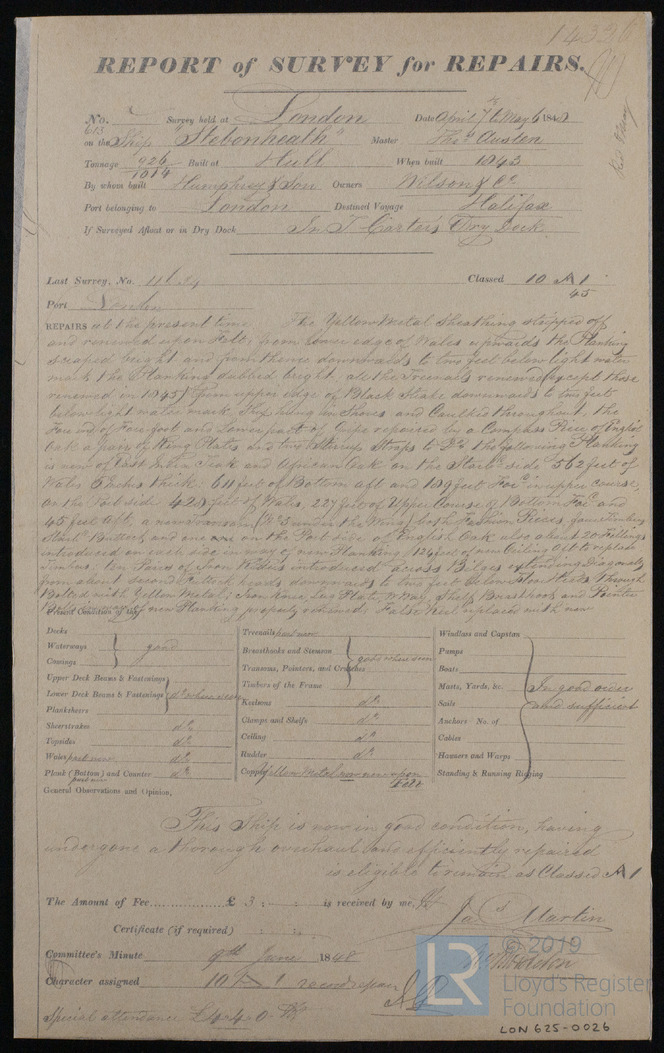 14326
REPORT of SURVEY for REPAIRS.
No. Survey held at London Date April 7 to May 6 1848
613
on the Ship "Stebonheath" Master Thos. Austen
Tonnage 926 Built at Hull When built 1843
1014
By whom built Humphrey & Son Owners Wilson & Co
Port belonging to London Destined Voyage Halifax
If Surveyed Afloat or in Dry Dock In T Carter's Dry Dock
Last Survey, No. Classed 10 A 1
45
Port London
REPAIRS at the present time The Yellow Metal Sheathing stripped off
and renewed upon Felt, from lower edge of Wales upwards the Planking
scraped bright and from thence downwards to two feet below light water
mark the Planking dubbed bright, all the Treenails renewed (except those
renewed in 1845) from upper edge of Black Strake downwards to two feet
below light water mark, Ship hung in Shores and Caulked throughout, the
Fore end of Fore foot and Lower part of Gripe repaired by a Compass Piece of English
Oak a pair of Wing Plates and two Stirrup Straps to Do the following Planking
is now of East India Teak and African Oak on the Starbd side 562 feet of
Wales 5 Inches thick. 611 feet of Bottom aft and 109 feet Ford in upper course,
on the Port side 428 feet of Wales, 227 feet of Upper Course of Bottom Ford and
45 feet aft, a new transom (No 3 under the Wing) both Fashion Pieces,
and one on the Port side of English Oak also about 20 Fillings
introduced on each side in way of new Planking 126 feet of new Ceiling
Timbers. ten Pieces of Iron Riders introduced across Bilges extending Diagonally
from about second Futtock heads downwards to two feet below Floor Heads Through
Bolted with Yellow Metal; Iron Knee, Shelf, Breasthook and Pointer
Bolts in way of new Planking properly renewed; False Keel replaced with new
Present Condition of her
Decks
Waterways good
Comings
Upper Deck Beams & Fastenings
Lower Deck Beams & Fastenings do where seen
Planksheers
Sheerstrakes do
Topsides do
Wales part new do
Plank (Bottom) and Counter do
part new
Treenails part new
Breasthooks and Stemson
Transoms, Pointers, and Crutches good where seen
Timbers of the Frame
Keelsons do
Clamps and Shelfs do
Ceiling do
Rudder do
Copper Yellow Metal now new upon
Felt
Windlass and Capstan
Pumps
Boats
Masts, Yards, &c. In good order
Sails and sufficient
Anchors - No. of
Cables
Hawsers and Warps
Standing & Running Rigging
General Observations and Opinion,
This Ship is now in good condition, having
undergone a thorough overhaul and efficiently repaired
is eligible to remain as Classed A 1
The Amount of Fee £ 3 : : is received by me,
Jas Martin
Certificate (if required) : :
Committee's Minute 9th June 1848
Character assigned 10 A 1 record repairs
Special attendance £4-4-0
© 2019
LR
Lloyd's Register
Foundation
LON 625-0026